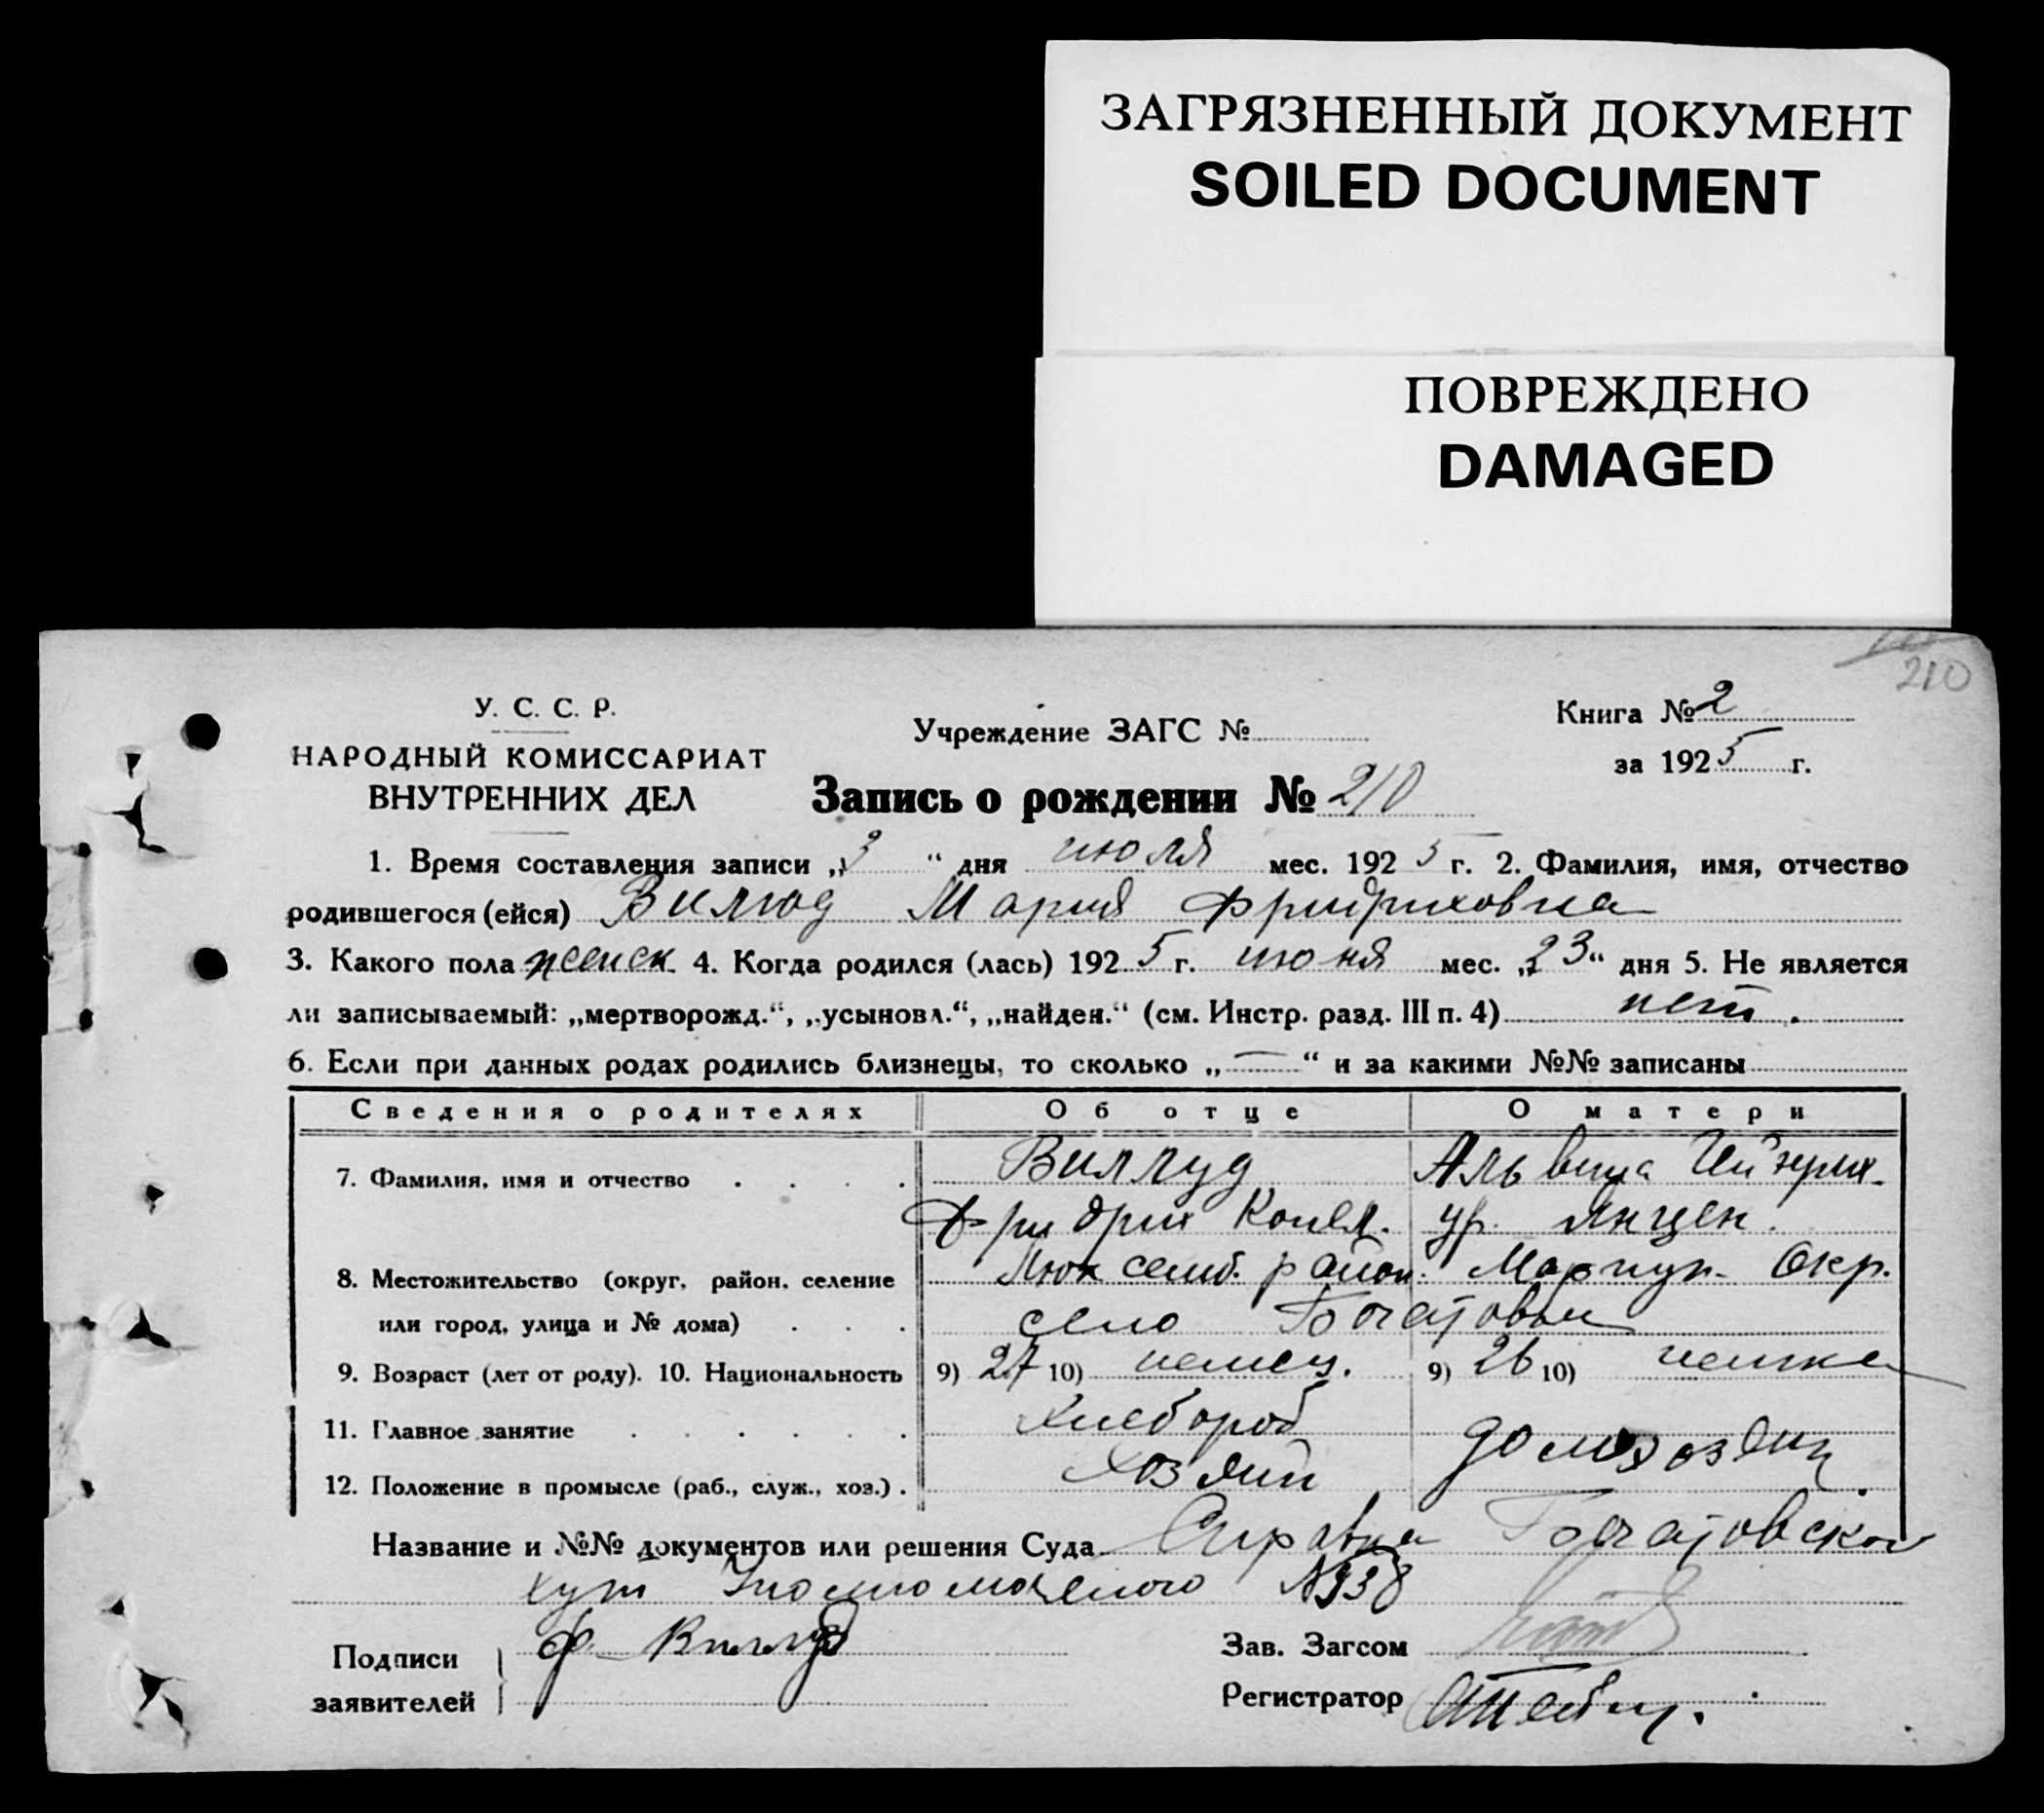 ЗАГРЯЗНЕННЫЙ ДОКУМЕНТ
SOILED DOCUMENT
ПОВРЕЖДЕНО
DAMAGED
210
У. С. С. Р.
НАРОДНЫЙ КОМИССАРИАТ
ВНУТРЕННИХ ДЕЛ
Учреждение ЗАГС №
Книга № 2
за 1925 г.
Запись о рождении № 210
1. Время составления записи „3“ дня июля мес. 1925 г. 2. Фамилия, имя, отчество
родившегося (ейся) Вилюд Мария Фридриховна
3. Какого пола женск. 4. Когда родился (лась) 1925 г. июня мес. „23“ дня 5. Не является
ли записываемый: „мертворожд.“, „усыновл.“, „найден.“ (см. Инстр. разд. III п. 4) нет.
6. Если при данных родах родились близнецы, то сколько „—“ и за какими №№ записаны
Сведения о родителях Об отце О матери
7. Фамилия, имя и отчество Виллуд Альвина
Фридрих ур. Янцен.
8. Местожительство (округ, район, селение Люксемб. район. Мариуп. Окр.
или город, улица и № дома) село
9. Возраст (лет от роду). 10. Национальность 9) 27 10) немец. 9) 26 10) немка
11. Главное занятие Хлебороб
12. Положение в промысле (раб., служ., хоз.) Хозяин домохозяйк.
Название и №№ документов или решения Суда Справка
хут №938
Подписи заявителей Ф. Виллуд
Зав. Загсом
Регистратор